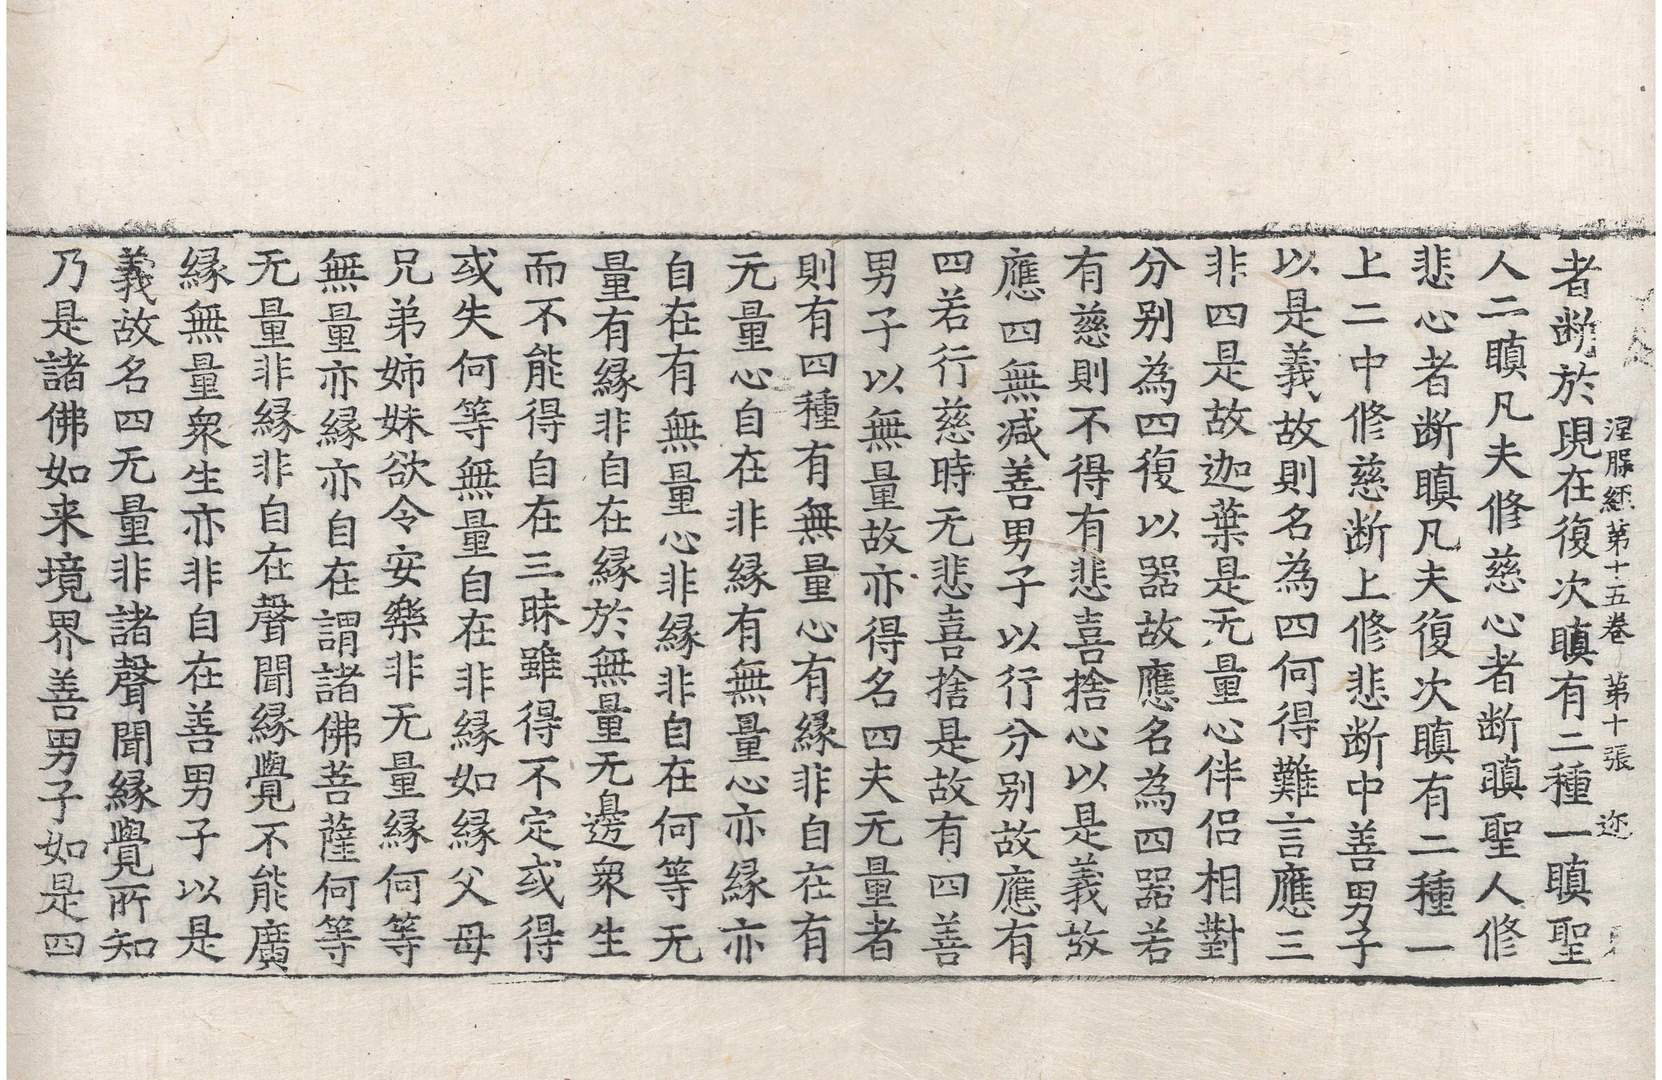 涅槃経第十五卷 第十張 迩
者断於現在復次瞋有二種一瞋聖
人二瞋凡夫修慈心者断瞋聖人修
悲心者断瞋凡夫復次瞋有二種一
上二中修慈断上修悲断中善男子
以是義故則名為四何得難言應三
非四是故迦葉是无量心伴侣相對
分别為四復以器故應名為四器若
有慈則不得有悲喜捨心以是義故
應四無减善男子以行分别故應有
四若行慈時无悲喜捨是故有四善
男子以無量故亦得名四夫无量者
則有四種有無量心有縁非自在有
无量心自在非縁有無量心亦縁亦
自在有無量心非縁非自在何等无
量有縁非自在縁於無量无邊衆生
而不能得自在三昧雖得不定或得
或失何等無量自在非縁如縁父母
兄弟姉妹欲令安樂非无量縁何等
無量亦縁亦自在謂諸佛菩薩何等
无量非縁非自在聲聞縁覺不能廣
縁無量衆生亦非自在善男子以是
義故名四无量非諸聲聞縁覺所知
乃是諸佛如来境界善男子如是四